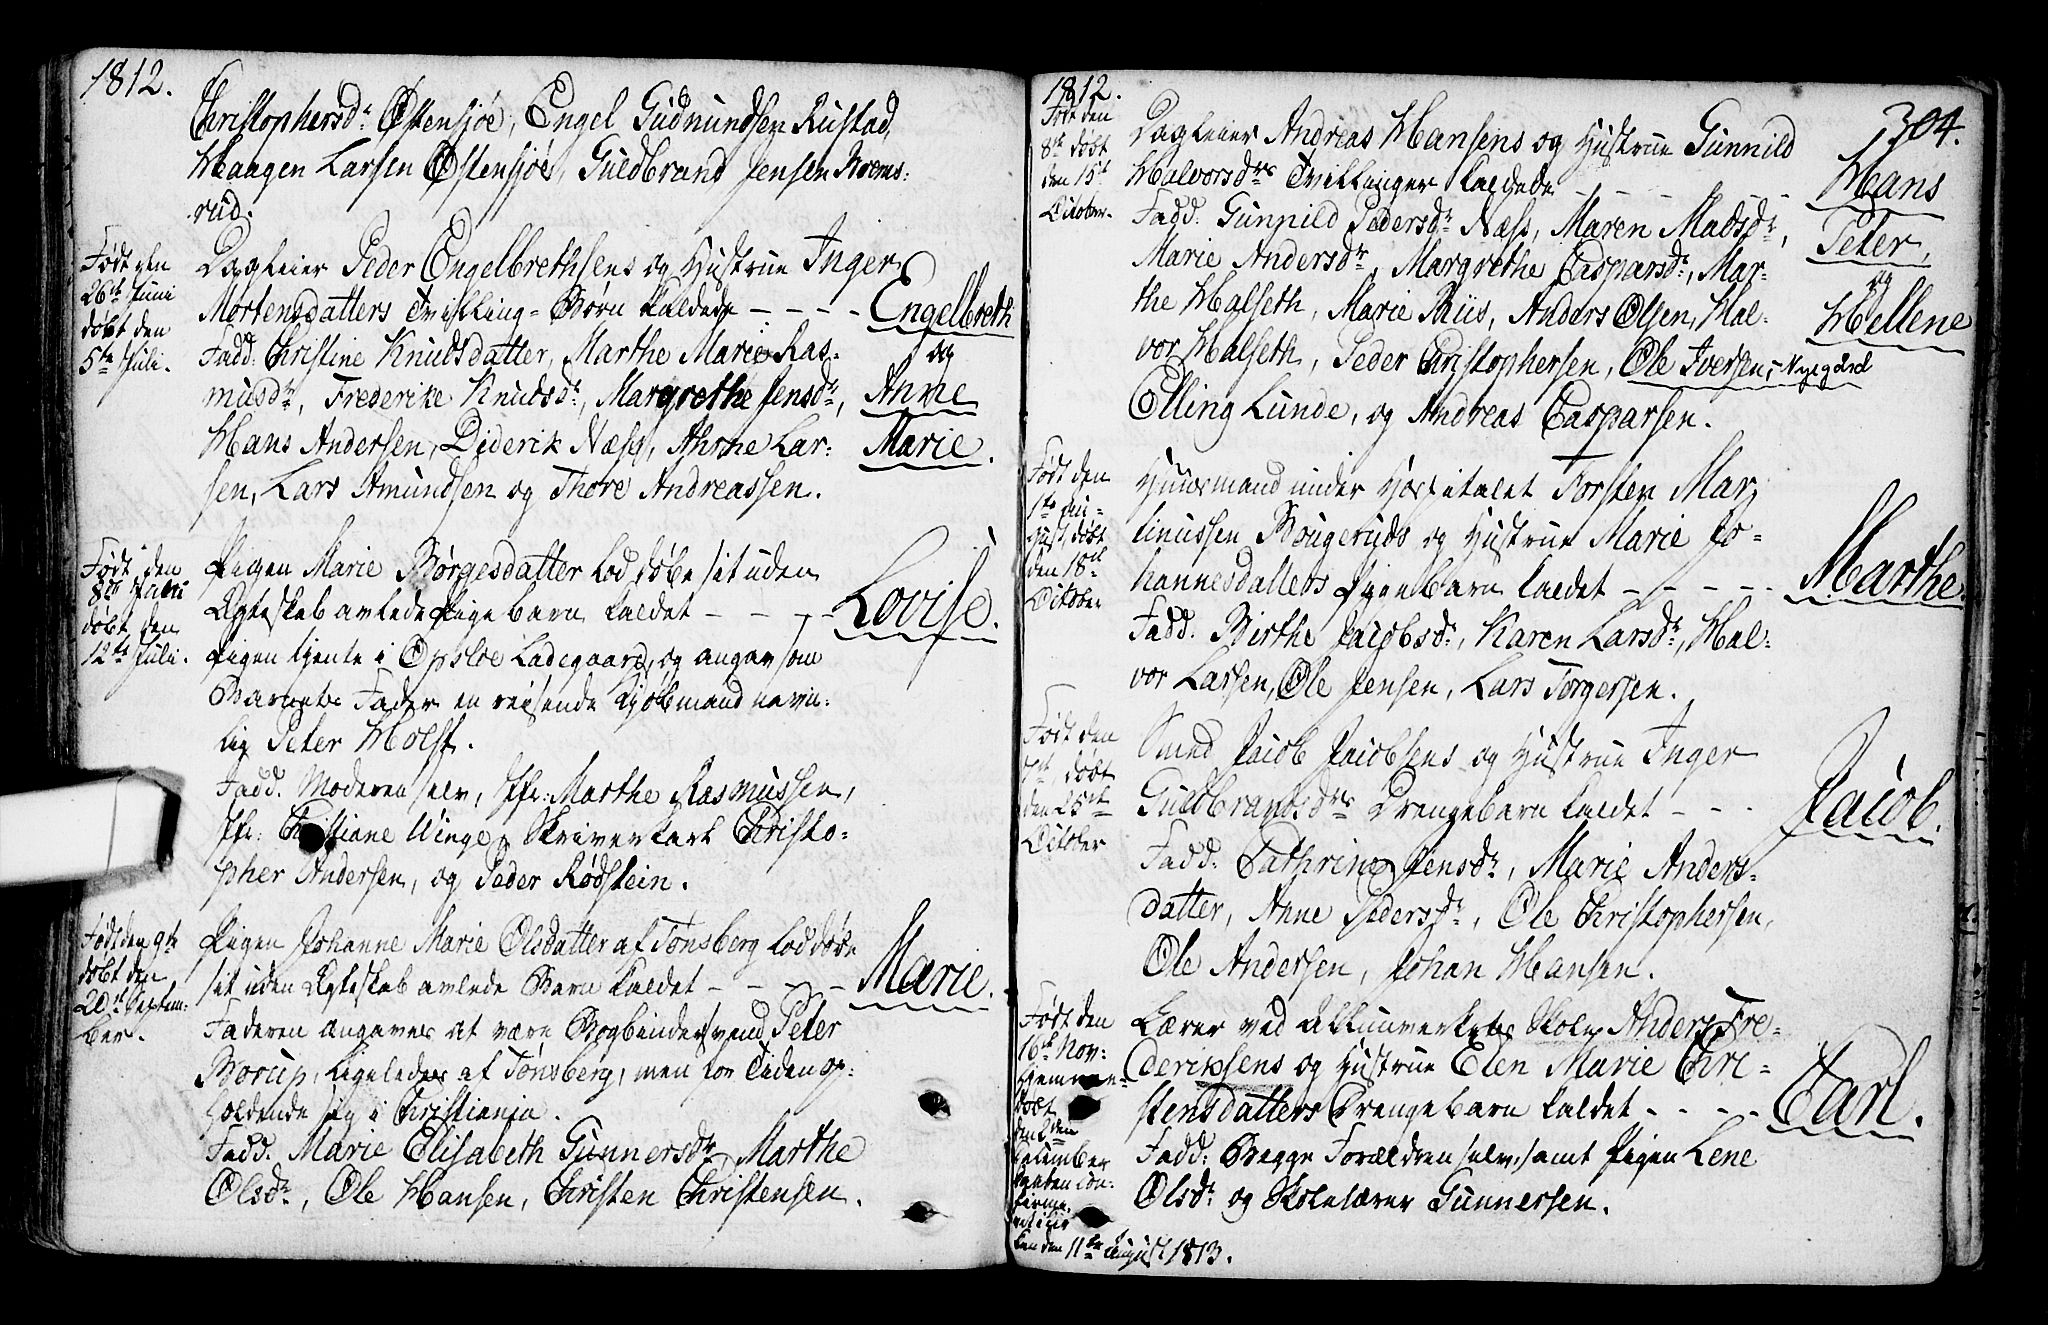 1812.
Christophersdr Østensjøe, Engel Gudmundsen Rustad,
Haagen Larsen Østensjøe, Guldbrand Jensen Brems:
rud.
Født den
26te Juni
døbt den
5te Juli.
Dagleier Peder Engelbrethsens og Hustrue Inger
Mortensdatters Tvilling-Børn kaldede - - - - Engelbreth
Fadd: Christine Knudsdatter, Marthe Marie Ras- og
musdr, Frederike Knudsdr, Margrethe Jensdr, Anne
Hans Andersen, Diderik Næss, Lar- Marie.
sen, Lars Amundsen og Thore Andreassen.
Født den
8de Juni
døbt den
12te Juli.
Pigen Marie Børgesdatter lod døbe sit uden
Ægteskab avlede Pigebarn kaldet - - - - Lovise.
Pigen tjente i Opsloe Ladegaard, og angav som
Barnets Fader en reisende Kjøbmand navn:
lig Peter Holst.
Fadd. Moderen selv, Jfr: Marthe Rasmussen,
Jfr: Christiane Winge, Skriverkarl Christo-
pher Andersen, og Peder Rødstein.
Født den 9de
døbt den
20de Septem:
ber.
Pigen Johanne Marie Olsdatter af Tønsberg lod døbe
sit uden Ægteskab avlede Barn kaldet - - - - Marie.
Faderen angaves at være Bogbindersvend Peter
Borup, ligeledes af Tønsberg, men for Tiden op:
holdende sig i Christiania.
Fadd. Marie Elisabeth Gunnersdr Marthe
Olsdr, Ole Hansen, Christen Christensen.
1812.
304.
Født den
8de døbt
den 15de
October.
Dagleier Andreas Hansens og Hustrue Gunnild
Halvorsdrs Tvillinger kaldede - - - - Hans
Fadd: Gunnild Pedersdr Næss, Maren Madsdr, Peter,
Marie Andersdr, Margrethe Caspersdr, Mar- og
the Halseth, Marie Riis, Anders Olsen, Hal- Hellene
vor Halseth, Peder Christophersen, Ole Iversen, Nyegård
Elling Lunde, og Andreas Casparsen.
Født den
1te Au-
gust, døbt
den 18de
October
Huusmand under Hospitalet Torsten Mar-
tinussen Bougeruds og Hustrue Marie Jo-
hannesdatters Pigebarn kaldet - - - - - Marthe.
Fadd. Birthe Jacobsdr, Karen Larsdr, Hal-
vor Larsen, Ole Jensen, Lars Torgersen.
Født den
7de, døbt
den 25de
October
Smed Jacob Jacobsens og Hustrue Inger
Guldbrandsdrs Drengebarn kaldet - - - Jacob.
Fadd: Cathrine Jensdr, Marie Anders-
datter, Anne Pedersdr, Ole Christophersen,
Ole Andersen, Johan Hansen.
Født den
16de Nov:
Hjemme-
døbt
den 2den
Lærer ved Allunverkets Skole Anders Fre-
deriksens og Hustrue Elen Marie Chri-
stensdatters Drengebarn kaldet - - - - Carl.
Fadd: Begge Forældren selv, samt Pigen Lene
Olsdr og Skolelærer Gunnersen.
ken den 11te August 1813.